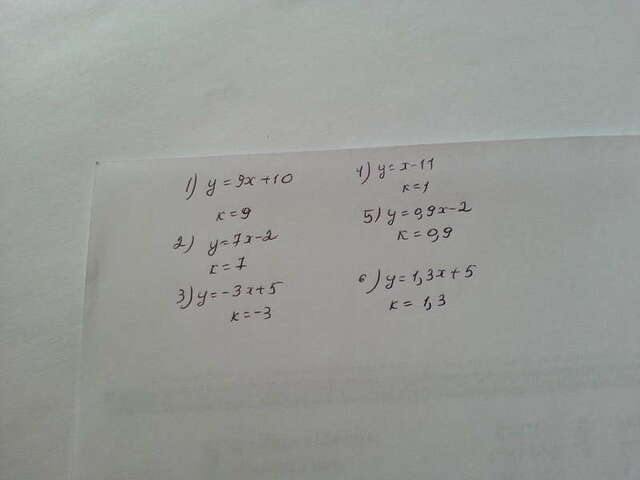 1) y = 9x + 10
к = 9
2) y = 7x - 2
к = 7
3) y = -3x + 5
к = -3
4) y = x - 11
к = 1
5) y = 0,9x - 2
к = 0,9
6) y = 1,3x + 5
к = 1,3